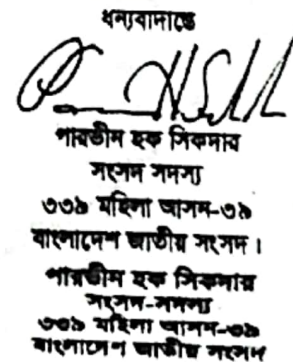 ধন্যবাদান্তে
পারভীন হক সিকদার
সংসদ সদস্য
৩৩৯ মহিলা আসন-৩৯
বাংলাদেশ জাতীয় সংসদ।
পারভীন হক সিকদার
সংসদ-সদস্য
৩৩৯ মহিলা আসন-৩৯
বাংলাদেশ জাতীয় সংসদ